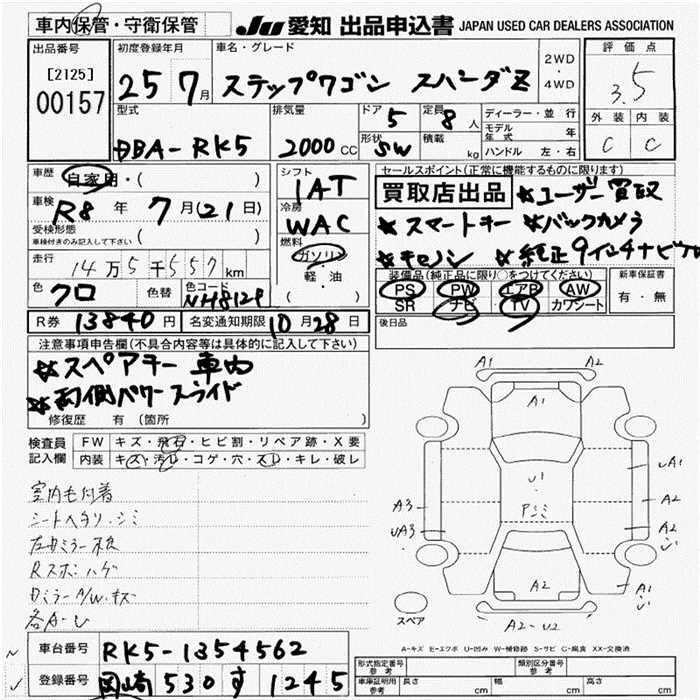 車内保管・守衛保管
JU 愛知 出品申込書 JAPAN USED CAR DEALERS ASSOCIATION
出品番号
[2125]
00157
初度登録年月
25 7月
車名・グレード
ステップワゴン スパーダZ
2WD
4WD
評価点
3.5
外装 内装
C C
型式
DBA-RK5
排気量
2000 CC
ドア
5
形状
SW
定員
8人
積載
kg
ディーラー・並行
モデル年式 年
ハンドル 左・右
車歴
自家用・( )
車検
R8年 7月(21日)
受検形態
車検付きのみ記入して下さい ( )
走行
14万5千557km
色
クロ
色替
色コード
NH812P
シフト
IAT
冷房
WAC
燃料
ガソリン
軽・油
( )
セールスポイント(正常に機能するものに限ります)
買取店出品 *ユーザー買取
*スマートキー *バックカメラ
*キセノン *純正9インチナビTV
装備品(純正品に限り○をつけてください)
PS PW エアB AW
SR ナビ TV カワシート
新車保証書
有・無
後日品
R券 13840円
名変通知期限 10月28日
注意事項申告欄(不具合内容等は具体的に記入して下さい)
*スペアキー 車内
*両側パワースライド
修復歴 有 (箇所 )
検査員記入欄
FW キズ・飛石・ヒビ割・リペア跡・X要
内装 キズ・汚レ・コゲ・穴・スレ・キレ・破レ
室内毛付着
シートヘタリ・シミ
Rスポハゲ
ミラーA/W.キズ
各A-U
A1 A2
A1
U1
Pシミ
UA1
A3
UA3
A2
A2
A2
A1
A2-U2
スペア
A-キズ E-エクボ U-凹み W-補修跡 S-サビ C-腐食 XX-交換済
車台番号
RK5-1354562
登録番号
岡崎 530 す 1245
形式指定番号 参考
類別区分番号 参考
車庫証明用 参考
長さ cm 幅 cm 高さ cm